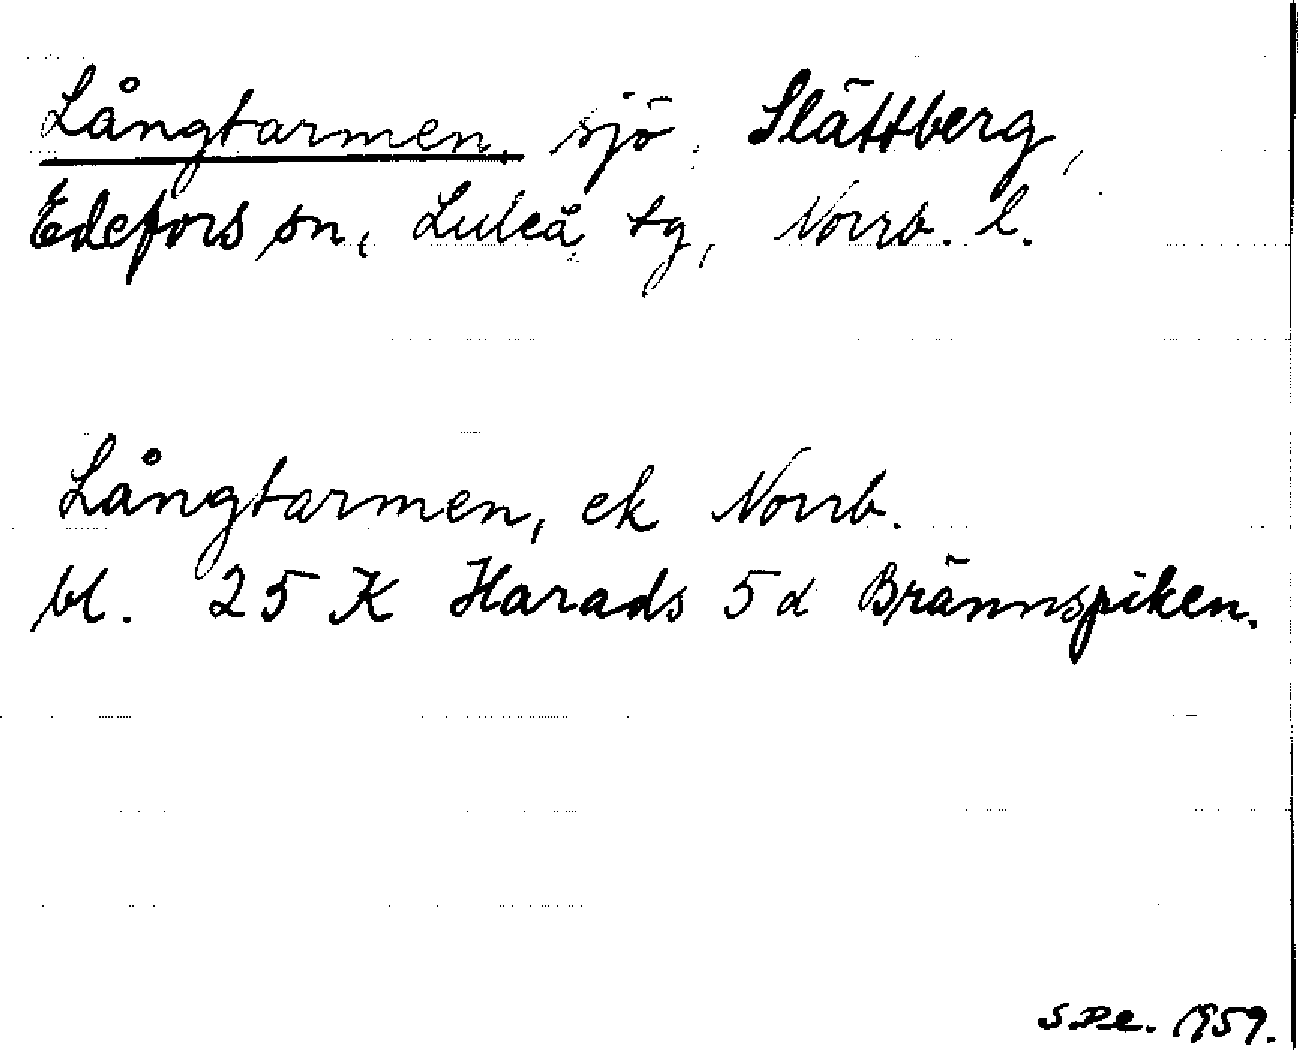 Långtarmen, sjö, Slättberg,
Edefors sn, Luleå tg, Norrb. l.
Långtarmen, ek Norrb.
bl. 25 K Harads 5 d Brännspiken.
S.De. 1959.